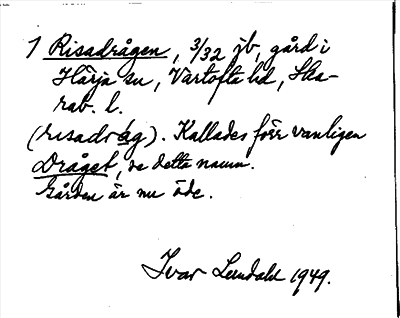 1 Risadrågen, 3/32 jb, gård i
Härja sn, Vartofta hd, Ska-
rab. l.
(rɩsadråg). Kallades förr vanligen
Dråget, se detta namn.
Gården är nu öde.
Ivar Lundahl 1949.